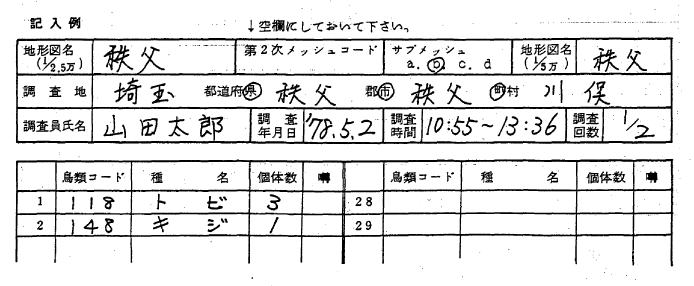 記入例
↓空欄にしておいて下さい。
地形図名 (1/2.5万) 秩父 第2次メッシュコード サブメッシュ a. b c. d 地形図名 (1/5万) 秩父
調査地 埼玉 都道府県 秩父 郡市 秩父 町村 川俣
調査員氏名 山田太郎 調査年月日 '78.5.2 調査時間 10:55~13:36 調査回数 1/2
鳥類コード 種名 個体数 囀 鳥類コード 種名 個体数 囀
1 118 トビ 3 28
2 148 キジ 1 29